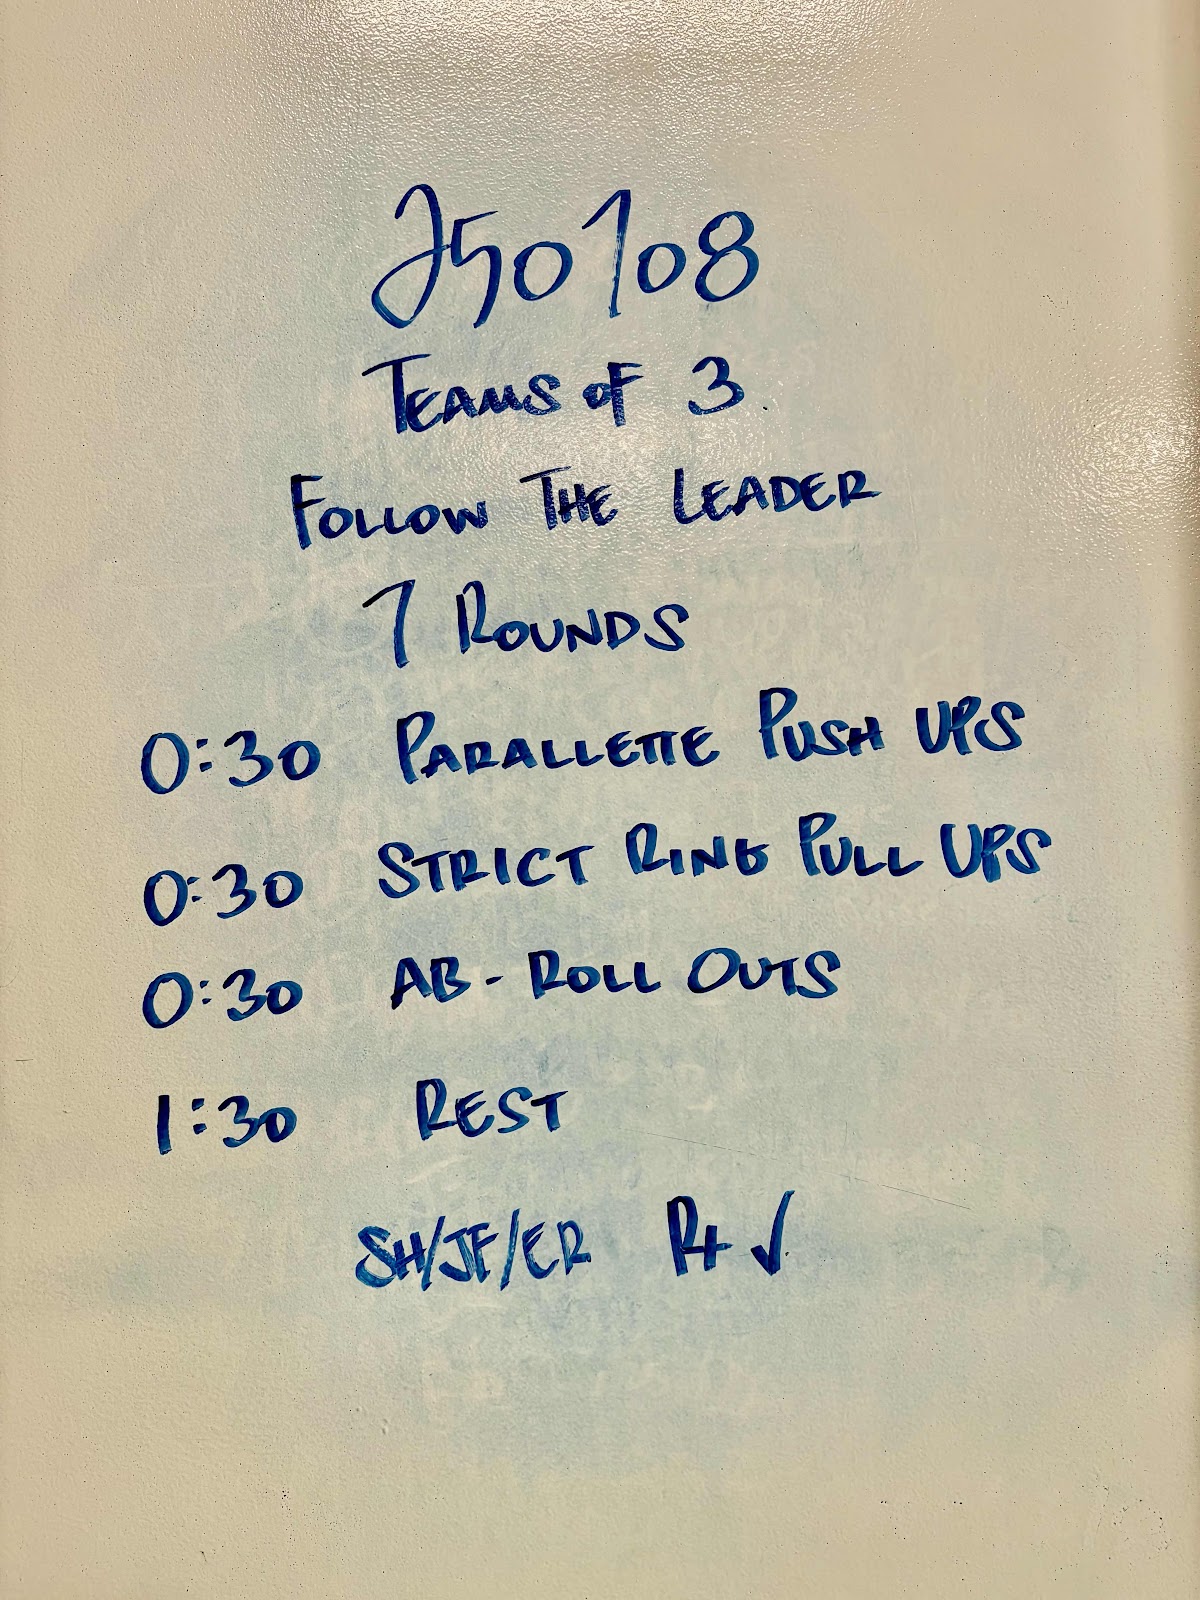 250708
TEAMS OF 3
FOLLOW THE LEADER
7 ROUNDS
0:30 PARALLETTE PUSH UPS
0:30 STRICT RING PULL UPS
0:30 AB-ROLL OUTS
1:30 REST
SH/JF/ER R+ ✓